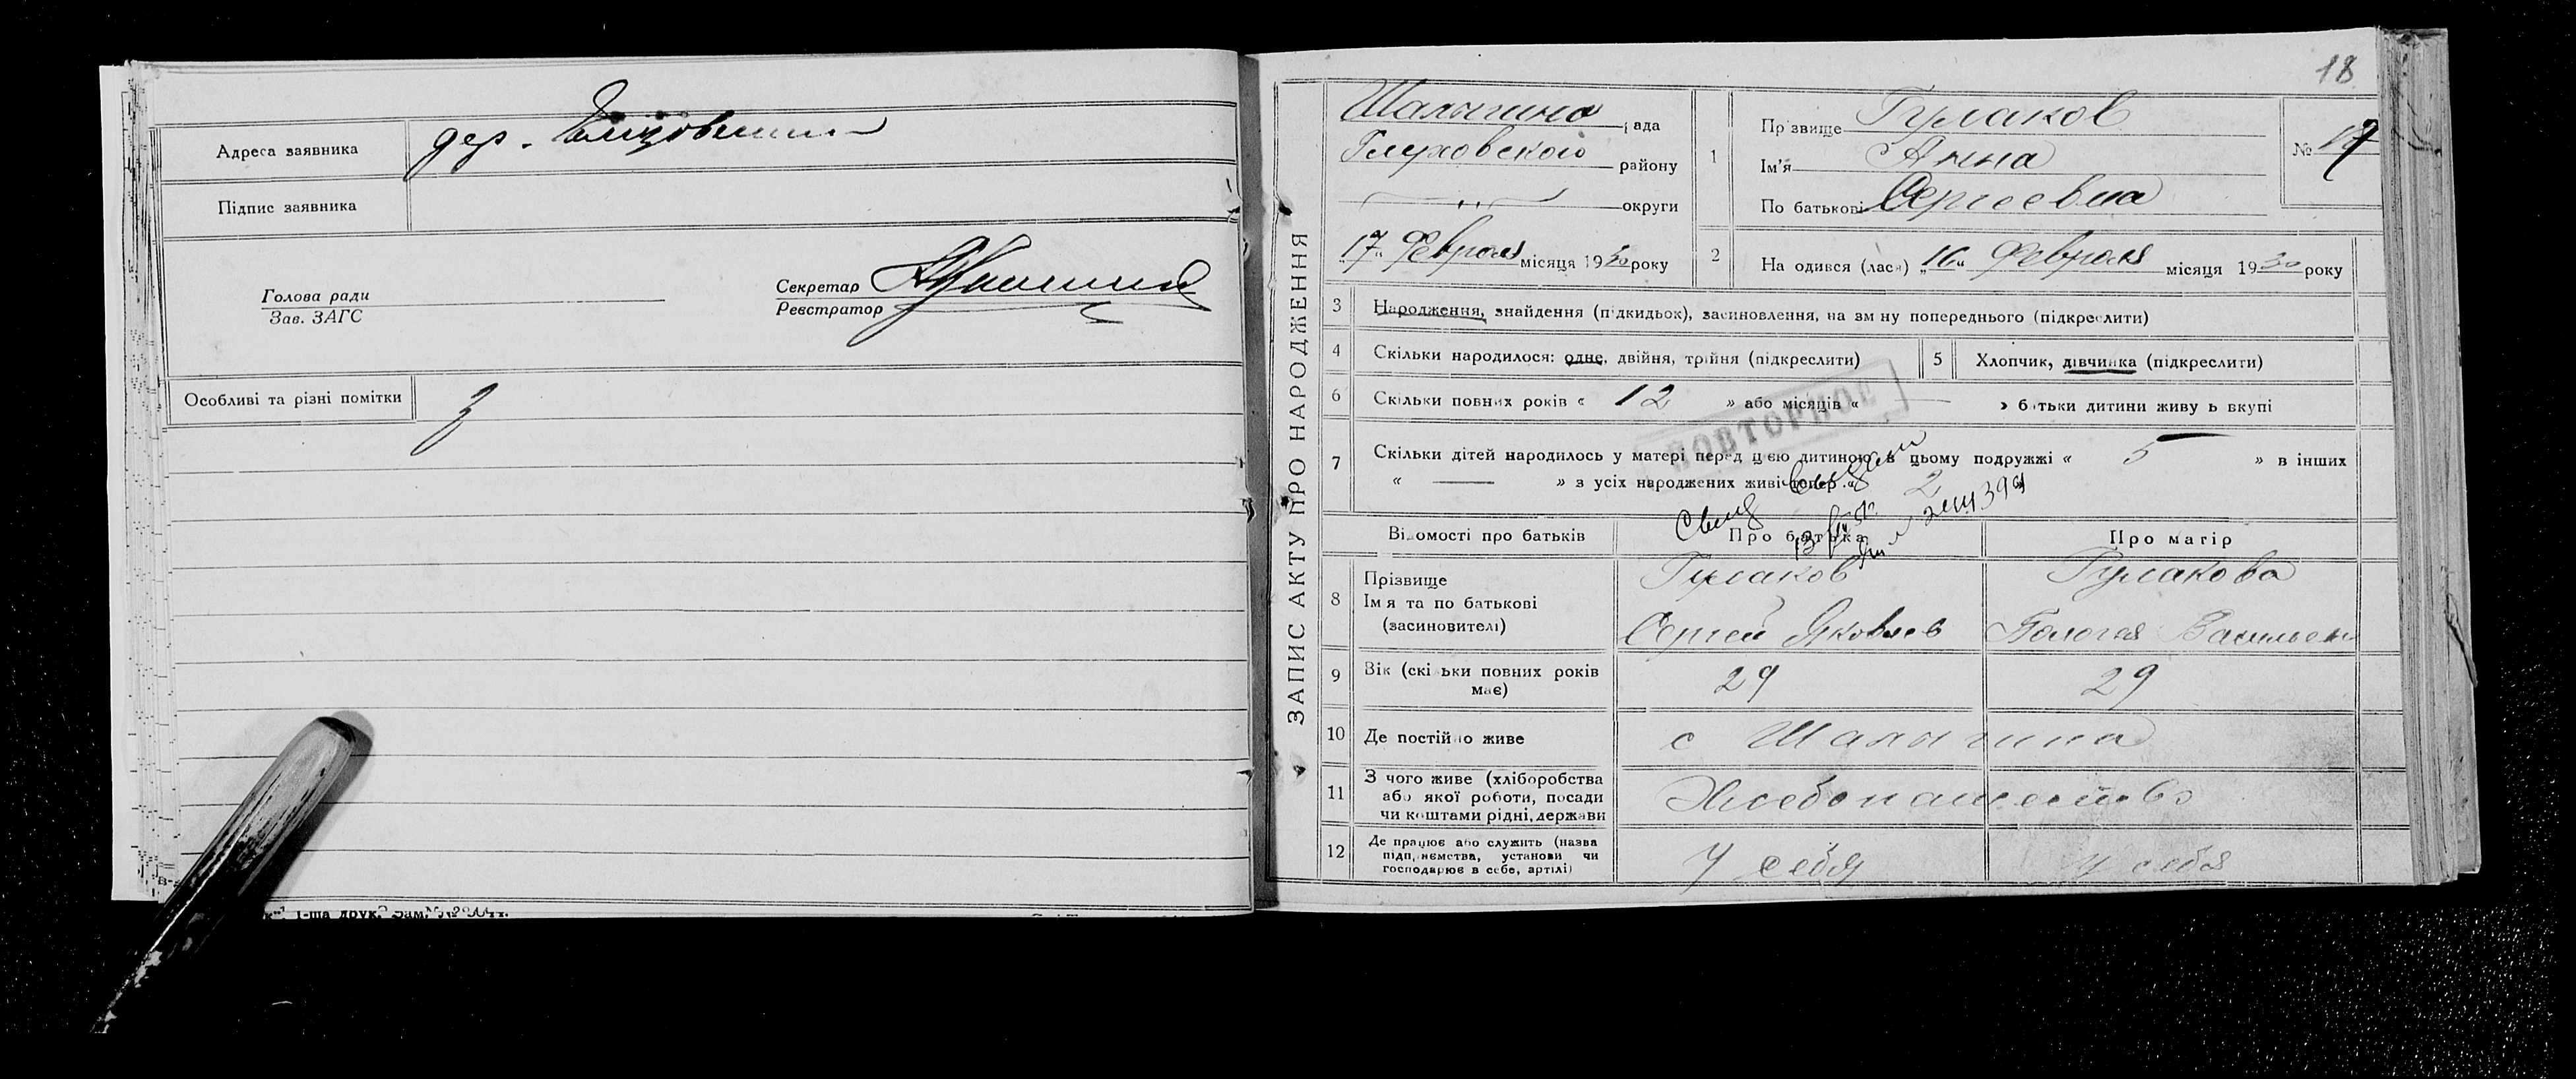 Адреса заявника дер.
Підпис заявника
Голова ради
Зав. ЗАГС
Секретар
Реєстратор
Особливі та різні помітки
18
ЗАПИС АКТУ ПРО НАРОДЖЕННЯ
Шалыгино рада
Глуховского району
округи
„17“ Февраля місяця 1930 року
1 Прізвище Гулаков
Ім'я Анна
По батькові Сергеевна
№ 17
2 Народився (лася) „16“ Февраля місяця 1930 року
3 Народження, знайдення (підкидьок), засиновлення, на зміну попереднього (підкреслити)
4 Скільки народилося: одне, двійня, трійня (підкреслити)
5 Хлопчик, дівчинка (підкреслити)
6 Скільки повних років « 12 » або місяців « — » батьки дитини живуть вкупі
ПОВТОРНОЕ
7 Скільки дітей народилось у матері перед цією дитиною в цьому подружжі « 5 » в інших
« — » з усіх народжених живі тепер « 2
Відомості про батьків Про батька Про матір
8 Прізвище Гулаков Гулакова
Ім'я та по батькові
(засновителі) Сергей Яковлев
9 Вік (скільки повних років
має) 29 29
10 Де постійно живе с Шалыгина
11 З чого живе (хліборобства
або якої роботи, посади
чи коштами рідні, держави Хлебопашество
12 Де працює або служить (назва
підприємства, установи чи
господарює в себе, артілі) У себя у себя